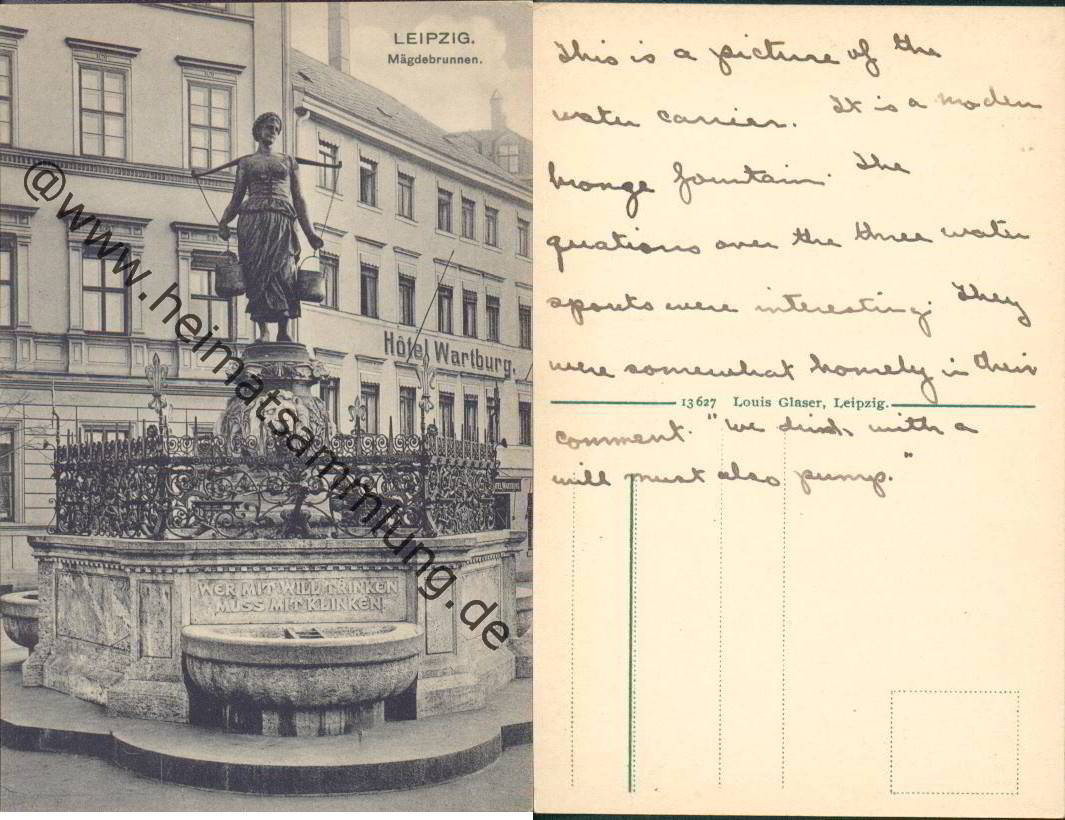 LEIPZIG.
Mägdebrunnen.
Hôtel Wartburg.
WER MIT WILL TRINKEN
MUSS MIT KLINKEN
@www.heimatsammlung.de
This is a picture of the
water carrier. It is a modern
bronze fountain. The
quations over the three water
spouts were interesting. They
were somewhat homely in their
13627 Louis Glaser, Leipzig.
comment. "We drink with a
will must also pump."